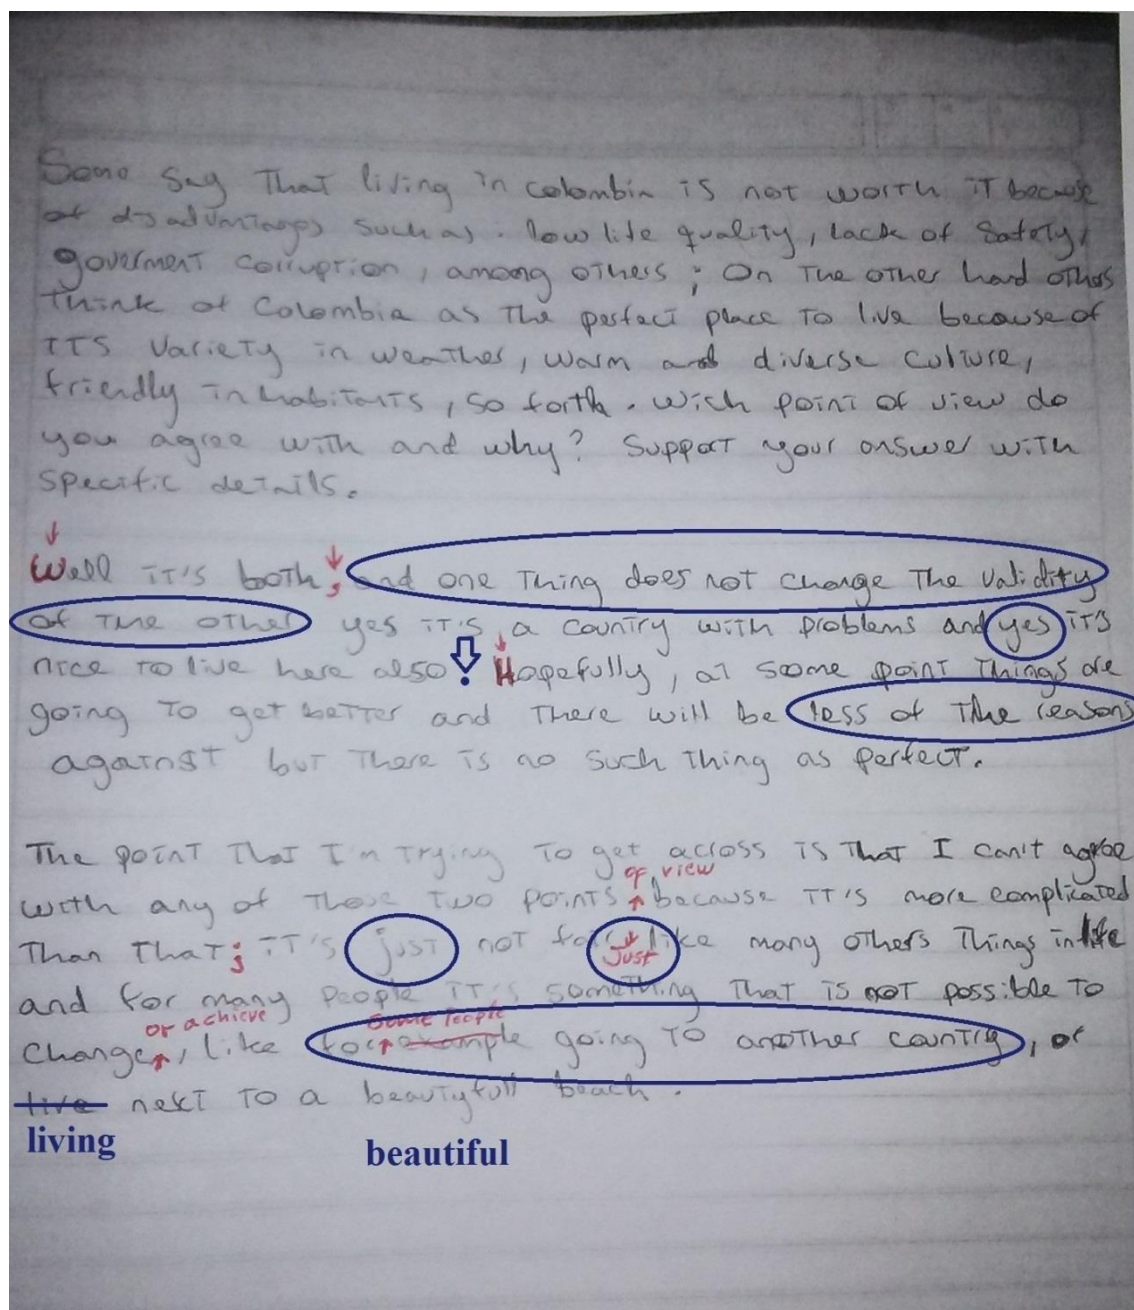 Some say That living in colombia is not worth it because
of disadvantages such as: low life quality, lack of safety,
goverment corruption, among others; On The other hand others
think of Colombia as The perfect place To live because of
ITS variety in weather, warm and diverse culture,
friendly inhabitants, so forth. wich point of view do
you agree with and why? Support your answer with
specific details.
Well it's both; and one Thing does not change The validity
of the other yes it's a country with problems and yes it's
nice to live here also. Hopefully, at some point Things are
going To get better and There will be less of The reasons
against but There is no such Thing as perfect.
The point That I'm Trying To get across is That I can't agree
of view
with any of Those Two points because it's more complicated
Than That; it's just not just like many others Things in life
and for many people it's something That is not possible to
or achieve some people
change, like for example going To another country, or
live next To a beautyfull beach.
living beautiful